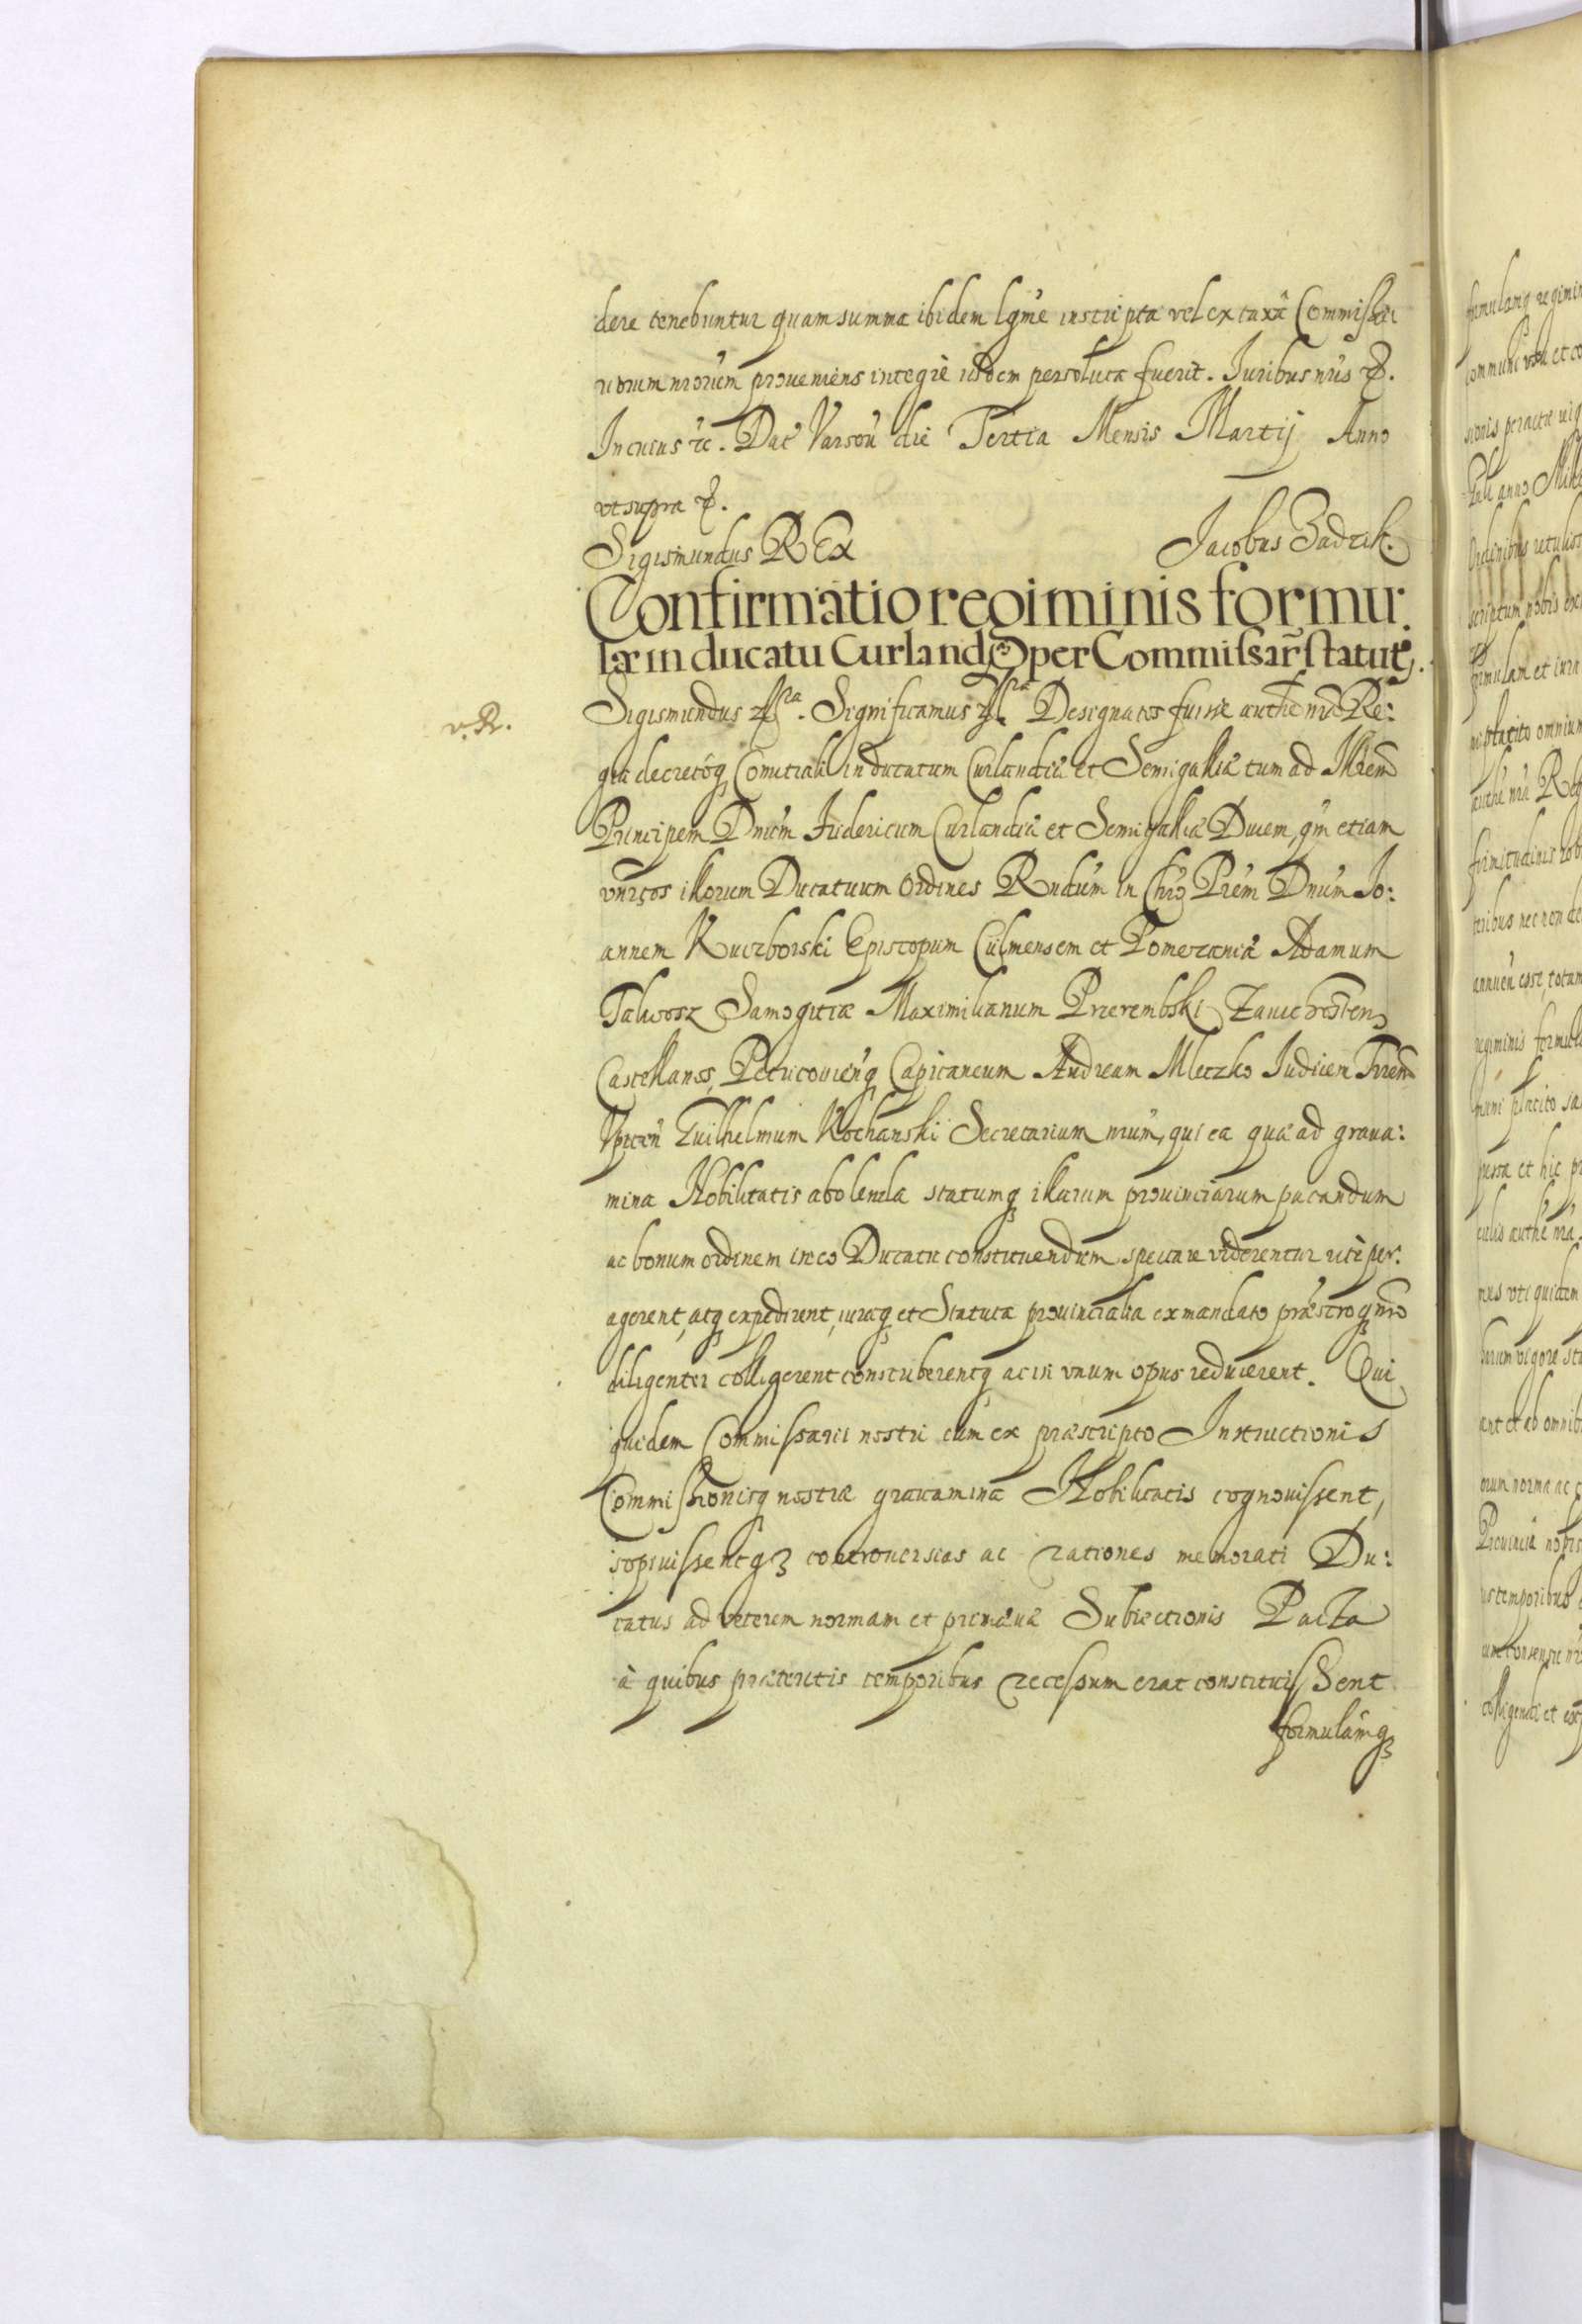 dere tenebuntur quam summa ibidem lgme inscripta vel ex taxa Commissar
riorum nrorum proueniens integre iisdem persoluta fuerit. Juribus nris &.
In cuius rc. Dat Varsou die Tertia Mensis Martij Anno
vt supra &.
Sigismundus REx Jacobus Zadzik.
Confirmatio regiminis formu:
læ in ducatu Curlandę per Commissar statutę.
v. R.
Sigismundus. Significamus Designatos fuisse authe nra Re:
gia decretoq Comitiali in ducatum Curlandiæ et Semigalliæ tum ad Illrem
Principem Dnum Fridericum Curlandiæ et Semigalliæ Ducem, qm etiam
vnirsos illorum Ducatuum Ordines Rndum in Chro Prem Dnum Jo:
annem Kuczborski Episcopum Culmensem et Pomeraniæ Adamum
Talwosz Samogitiæ Maximilianum Przerembski Zauichosten
Castellanos, Petricouienq Capitaneum Andream Mleczko Judicem Trren
Vpiten Guilhelmum Kochanski Secretarium nrum, qui ea quæ ad graua:
mina Nobilitatis abolenda statumq illarum prouinciarum pacandum
ac bonum ordinem in eo Ducatu constituendum spectare viderentur rite per:
agerent, atq expedirent, iuraq et Statuta prouincialia ex mandato præscroq nro
diligenter colligerent conscriberentq ac in vnum opus reducerent. Qui
quidem Commissarii nostri cum ex præscripto Instructionis
Commissionisq nostræ grauamina Nobilitatis cognouissent,
sopiuissentq controuersias ac rationes memorati Du:
catus ad veterem normam et primæua Subiectionis Pacta
à quibus præteritis temporibus recessum erat constituissent
formulamq